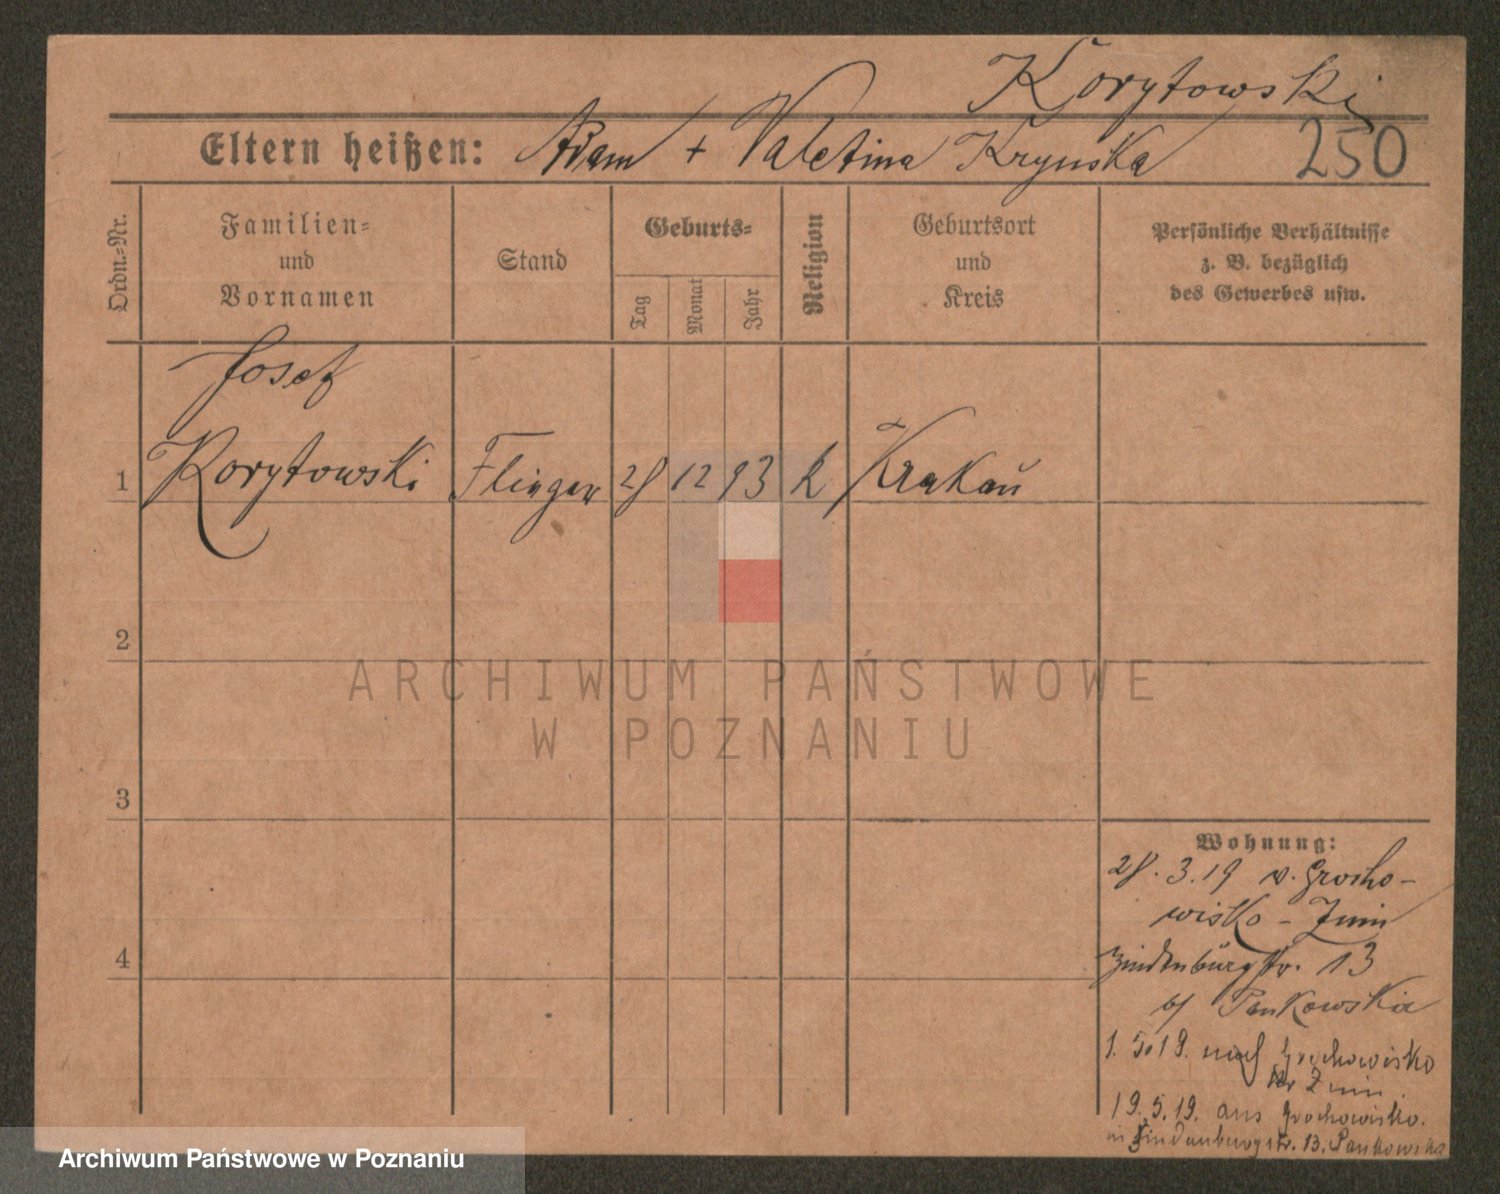 Korytowski
Eltern heißen: Adam + Valetina Krynska
250
Ordn.-Nr.
Familien-
und
Vornamen
Stand
Geburts-
Tag
Monat
Jahr
Religion
Geburtsort
und
Kreis
Persönliche Verhältnisse
z. B. bezüglich
des Gewerbes usw.
Josef
1 Korytowski Flieger 28 12 93 k Krakau
2
3
4
Wohnung:
28. 3. 19 v. Grocho-
wisko - Znin
Hindenburgstr. 13
b/ Pankowska
1. 5. 19. nach Grochowisko
Kr Znin.
19. 5. 19. aus Grochowisko.
in Hindenburgstr. 13. Pankowska
ARCHIWUM PAŃSTWOWE
W POZNANIU
Archiwum Państwowe w Poznaniu